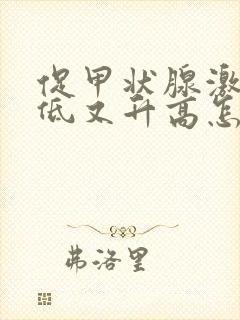 促甲状腺激
低又升高怎
弗洛里